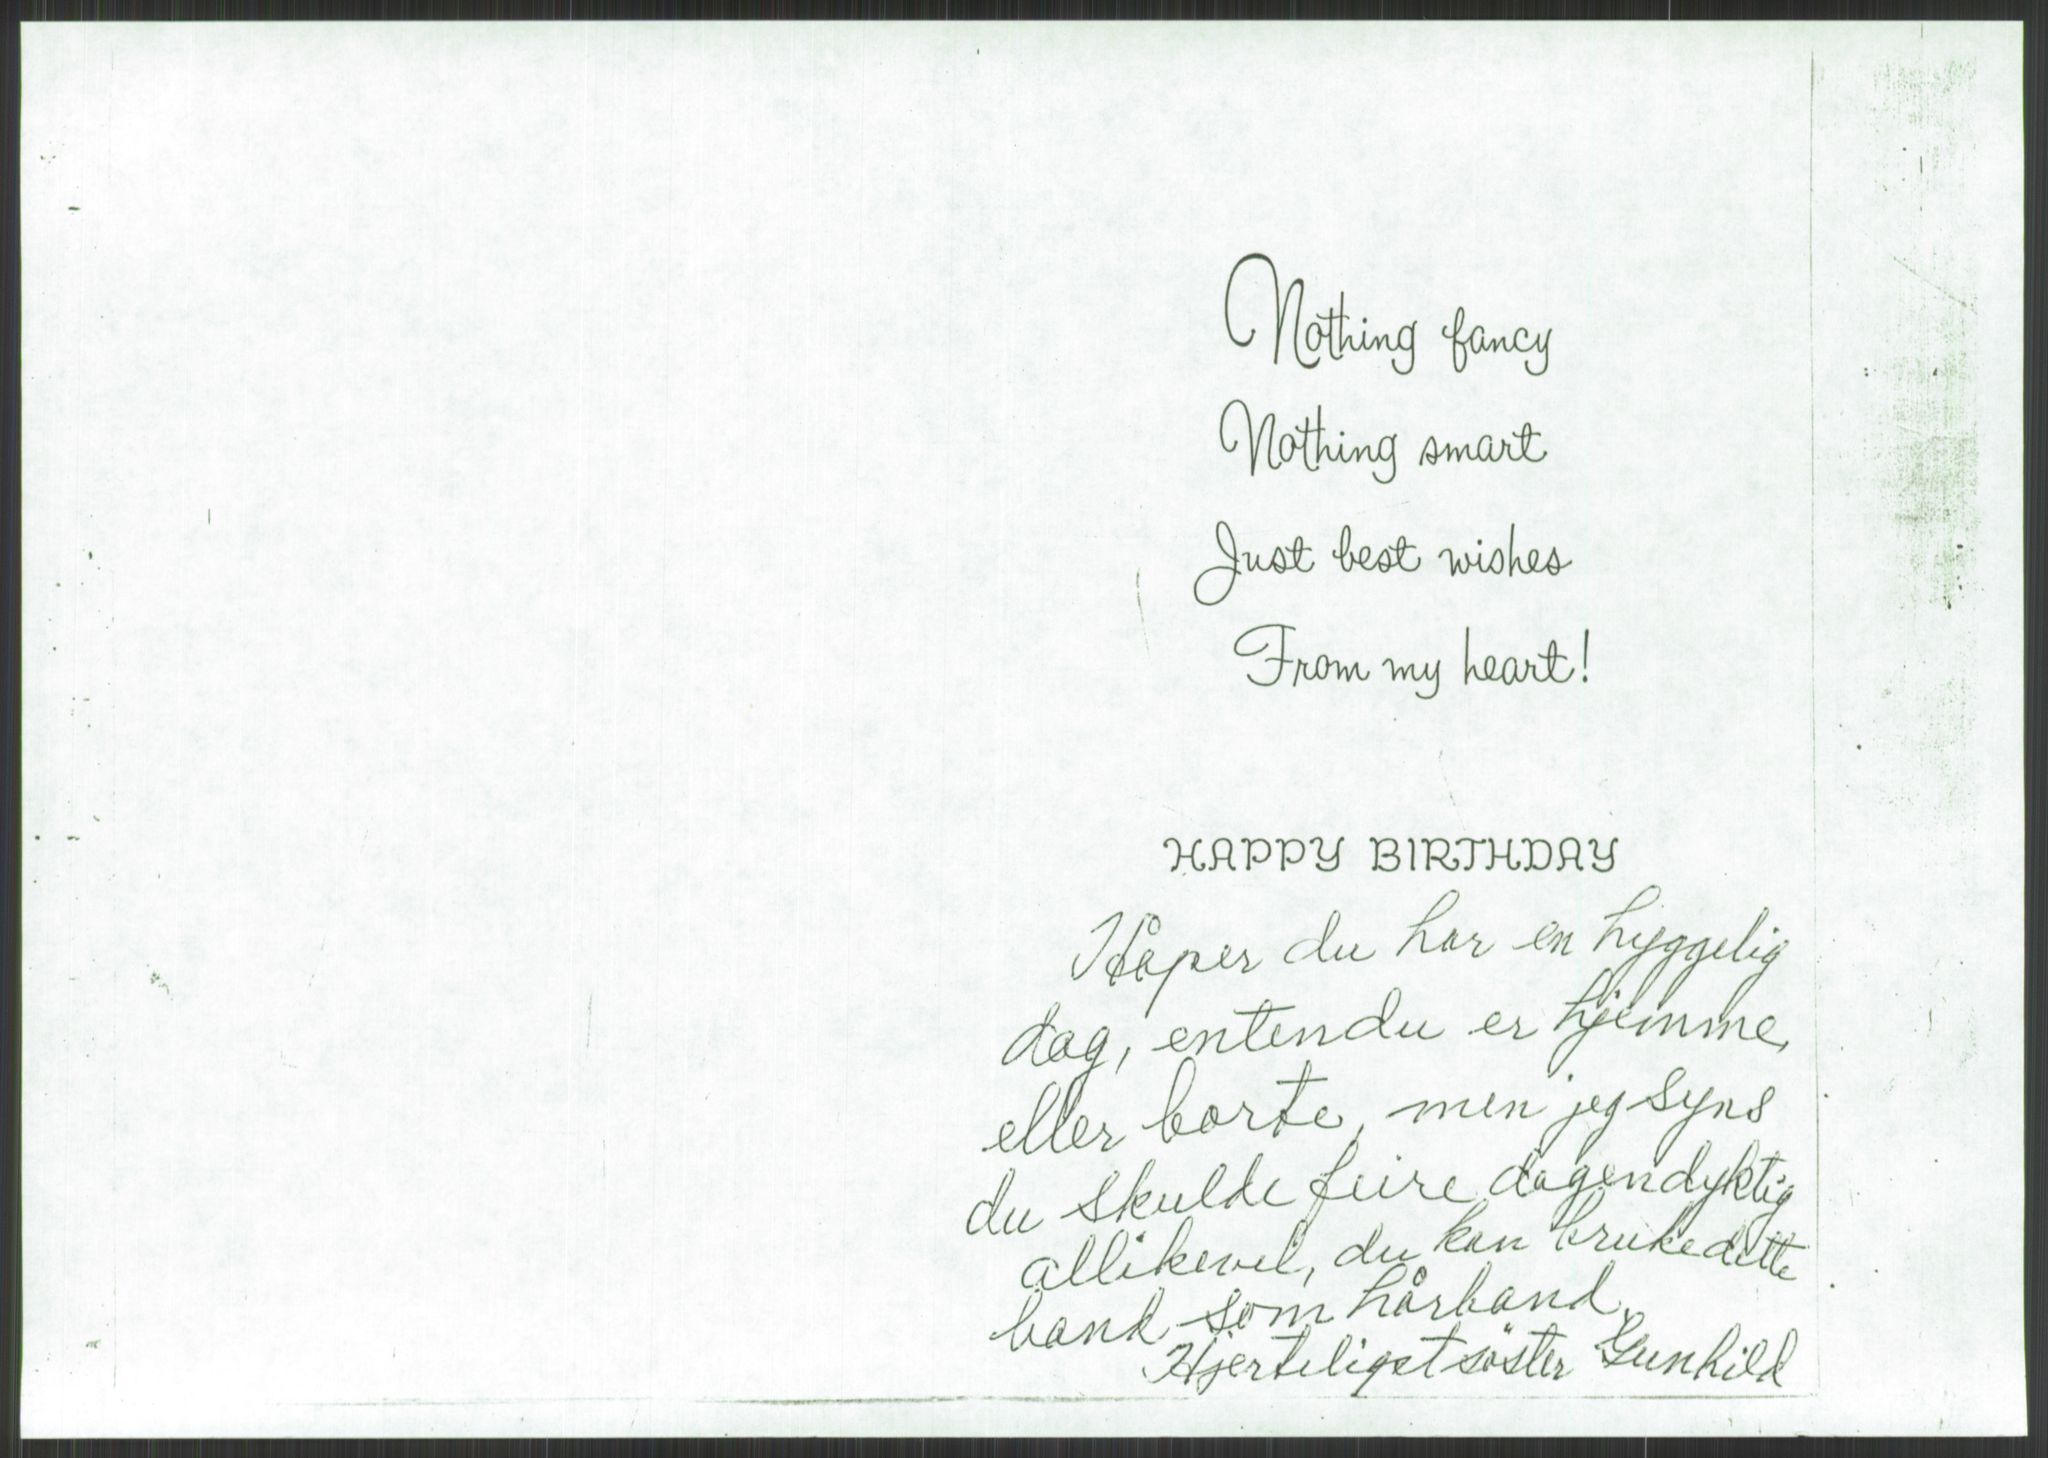 Nothing fancy
Nothing smart
Just best wishes
From my heart!
HAPPY BIRTHDAY
Håper du har en hyggelig
dag, enten du er hjemme,
eller borte, men jeg syns
du skulde feire dagen dyktig
allikevel, du kan bruke dette
band som hårband.
Hjerteligst søster Gunhild